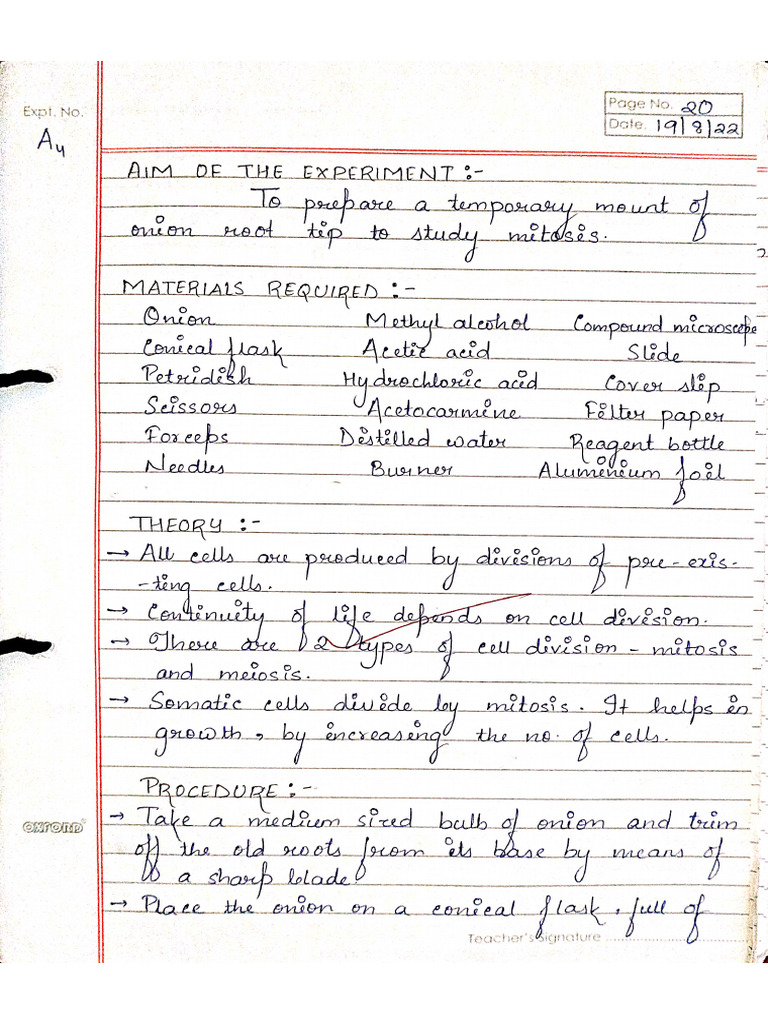 Expt. No.
A4
Page No. 20
Date. 19/8/22
AIM OF THE EXPERIMENT :-
To prepare a temporary mount of
onion root tip to study mitosis.
MATERIALS REQUIRED :-
Onion Methyl alcohol Compound microscope
Conical flask Acetic acid Slide
Petridish Hydrochloric acid Cover slip
Scissors Acetocarmine Filter paper
Forceps Distilled water Reagent bottle
Needles Burner Alumineium foil
THEORY :-
→ All cells are produced by divisions of pre-exis-
-ting cells.
→ Continuity of life depends on cell division.
→ There are 2 types of cell division - mitosis
and meiosis.
→ Somatic cells divide by mitosis. It helps in
growth, by increasing the no. of cells.
PROCEDURE :-
→ Take a medium sized bulb of onion and trim
off the old roots from its base by means of
a sharp blade.
→ Place the onion on a conical flask, full of
OXFORD
Teacher's Signature